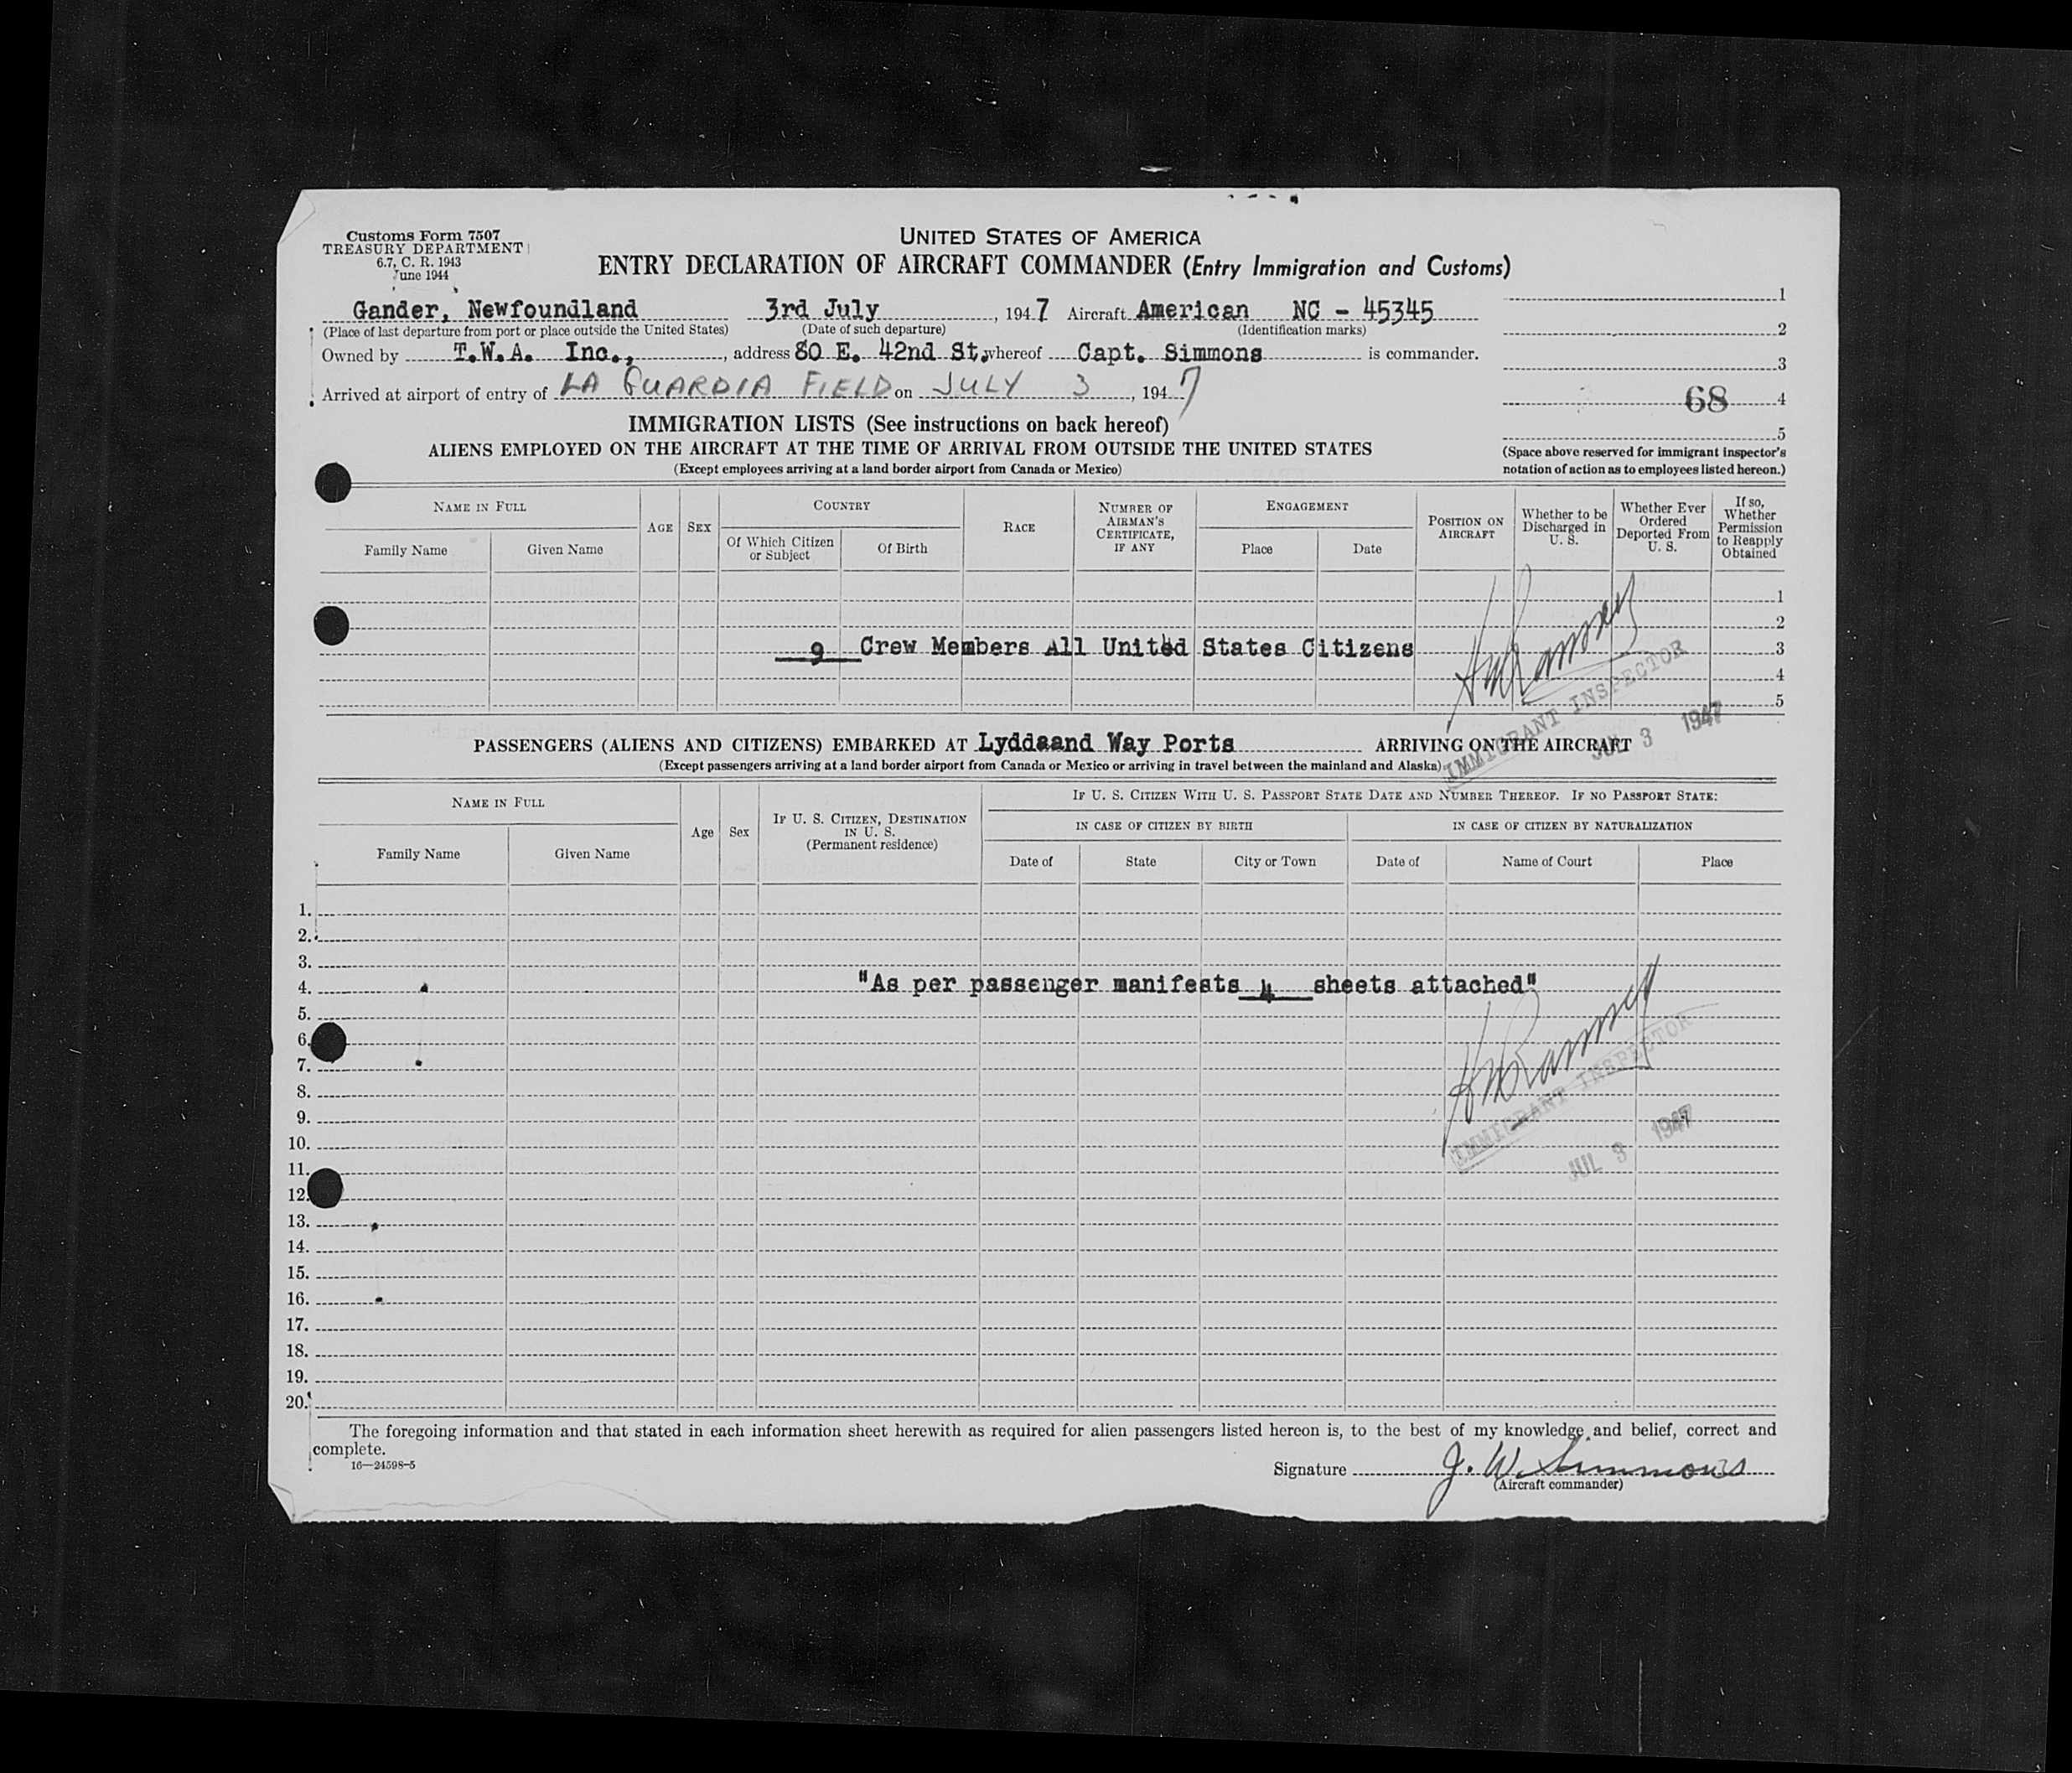 Customs Form 7507
TREASURY DEPARTMENT
6.7, C. R. 1943
June 1944
UNITED STATES OF AMERICA
ENTRY DECLARATION OF AIRCRAFT COMMANDER (Entry Immigration and Customs)
Gander, Newfoundland 3rd July, 1947 Aircraft American NC - 45345
(Place of last departure from port or place outside the United States) (Date of such departure) (Identification marks)
Owned by T.W.A. Inc., , address 80 E. 42nd St, whereof Capt. Simmons is commander.
Arrived at airport of entry of LA GUARDIA FIELD on JULY 3, 1947
1
2
3
68 4
5
(Space above reserved for immigrant inspector's
notation of action as to employees listed hereon.)
IMMIGRATION LISTS (See instructions on back hereof)
ALIENS EMPLOYED ON THE AIRCRAFT AT THE TIME OF ARRIVAL FROM OUTSIDE THE UNITED STATES
(Except employees arriving at a land border airport from Canada or Mexico)
NAME IN FULL
Family Name Given Name
AGE SEX
COUNTRY
Of Which Citizen or Subject Of Birth
RACE
NUMBER OF AIRMAN'S CERTIFICATE, IF ANY
ENGAGEMENT
Place Date
POSITION ON AIRCRAFT
Whether to be Discharged in U. S.
Whether Ever Ordered Deported From U. S.
If so, Whether Permission to Reapply Obtained
1
2
9 Crew Members All United States Citizens 3
4
5
IMMIGRANT INSPECTOR
JUL 3 1947
PASSENGERS (ALIENS AND CITIZENS) EMBARKED AT Lyddaand Way Ports ARRIVING ON THE AIRCRAFT
(Except passengers arriving at a land border airport from Canada or Mexico or arriving in travel between the mainland and Alaska)
NAME IN FULL
Family Name Given Name
Age Sex
IF U. S. CITIZEN, DESTINATION IN U. S. (Permanent residence)
IF U. S. CITIZEN WITH U. S. PASSPORT STATE DATE AND NUMBER THEREOF. IF NO PASSPORT STATE:
IN CASE OF CITIZEN BY BIRTH IN CASE OF CITIZEN BY NATURALIZATION
Date of State City or Town Date of Name of Court Place
1.
2.
3.
4. "As per passenger manifests 4 sheets attached"
5.
6.
7.
8.
9.
10.
11.
12.
13.
14.
15.
16.
17.
18.
19.
20.
IMMIGRANT INSPECTOR
JUL 3 1947
The foregoing information and that stated in each information sheet herewith as required for alien passengers listed hereon is, to the best of my knowledge and belief, correct and
complete.
16—24598-5
Signature J. W. Simmons
(Aircraft commander)